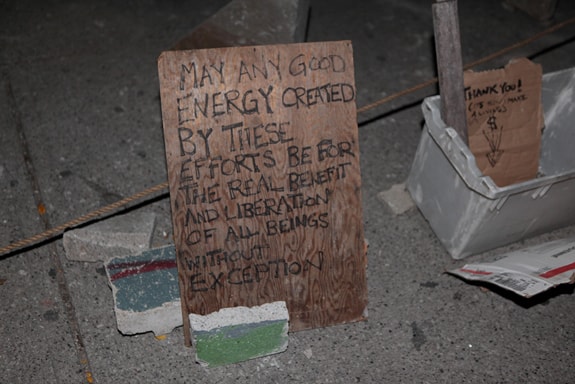 MAY ANY GOOD
ENERGY CREATED
BY THESE
EFFORTS BE FOR
THE REAL BENEFIT
AND LIBERATION
OF ALL BEINGS
WITHOUT
EXCEPTION
THANK YOU!
MAKE
$